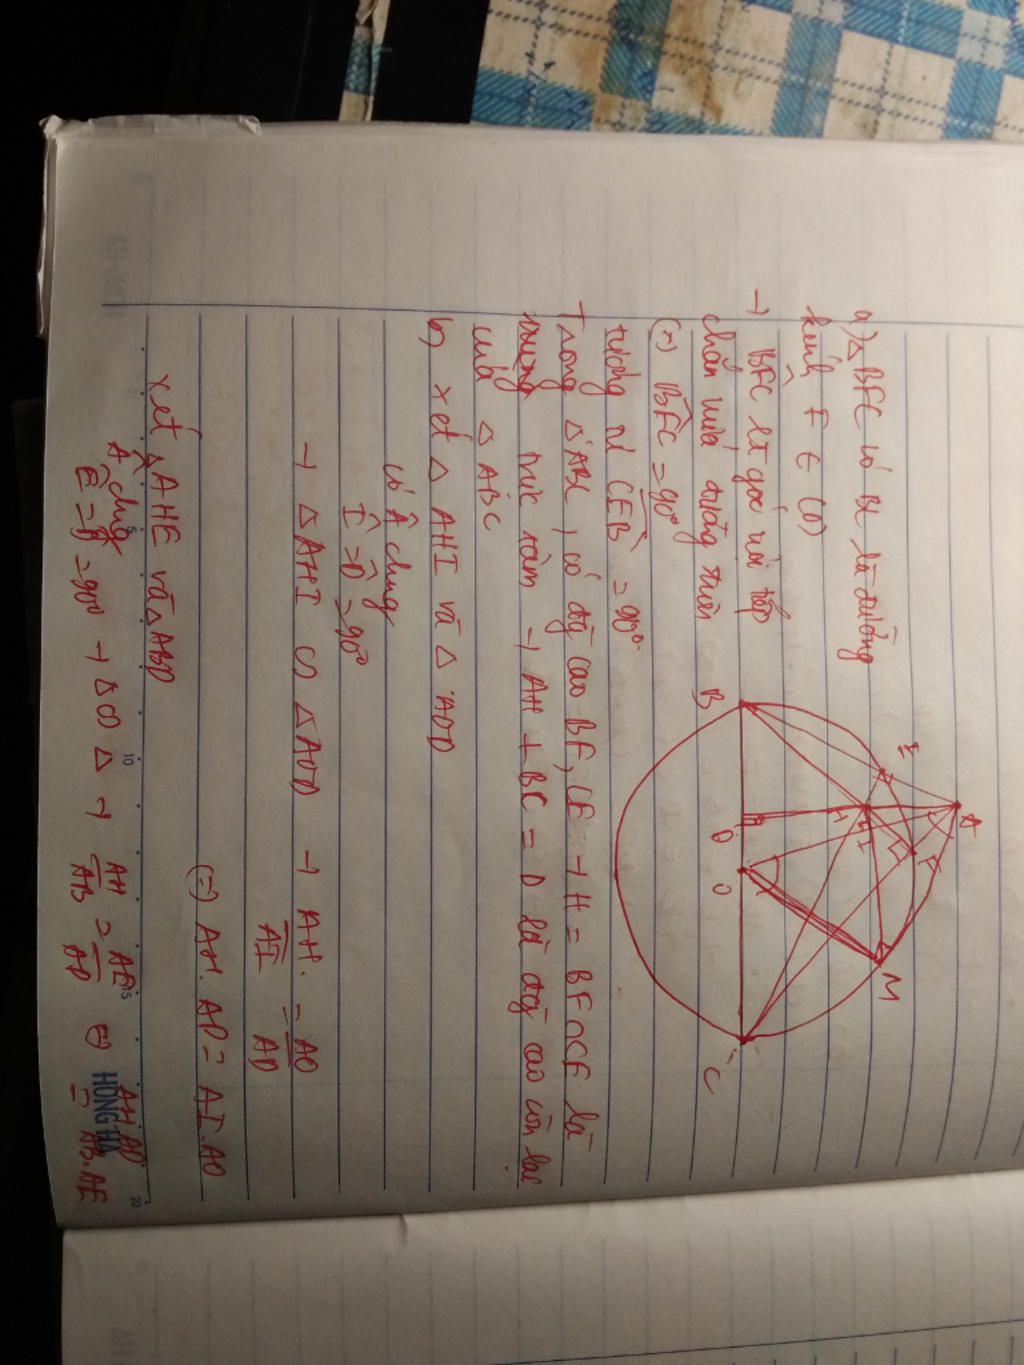 a) △ BFC có BC là đường
kính F ∈ (O)
→ BFC là góc nội tiếp
chắn nửa đường tròn
(=) BFC = 90°
tương tự CEB = 90°
Trong △ ABC, có đg cao BF, CE → H = BF ∩ CE là
trực tâm → AH ⊥ BC = D là đg cao còn lại
của △ ABC
b) xét △ AHI và △ AOD
có Â chung
Î = D̂ = 90°
→ △ AHI ∽ △ AOD → AH/AI = AO/AD
(=) AH. AD = AI. AO
xét △ AHE và △ ABD
Â chung
Ê = D̂ = 90° → △ ∽ △ → AH/AB = AE/AD ⇔ AH.AD = AB.AE
A
E
F
M
H
I
B
D
O
C
5
10
15
20
HONG HA